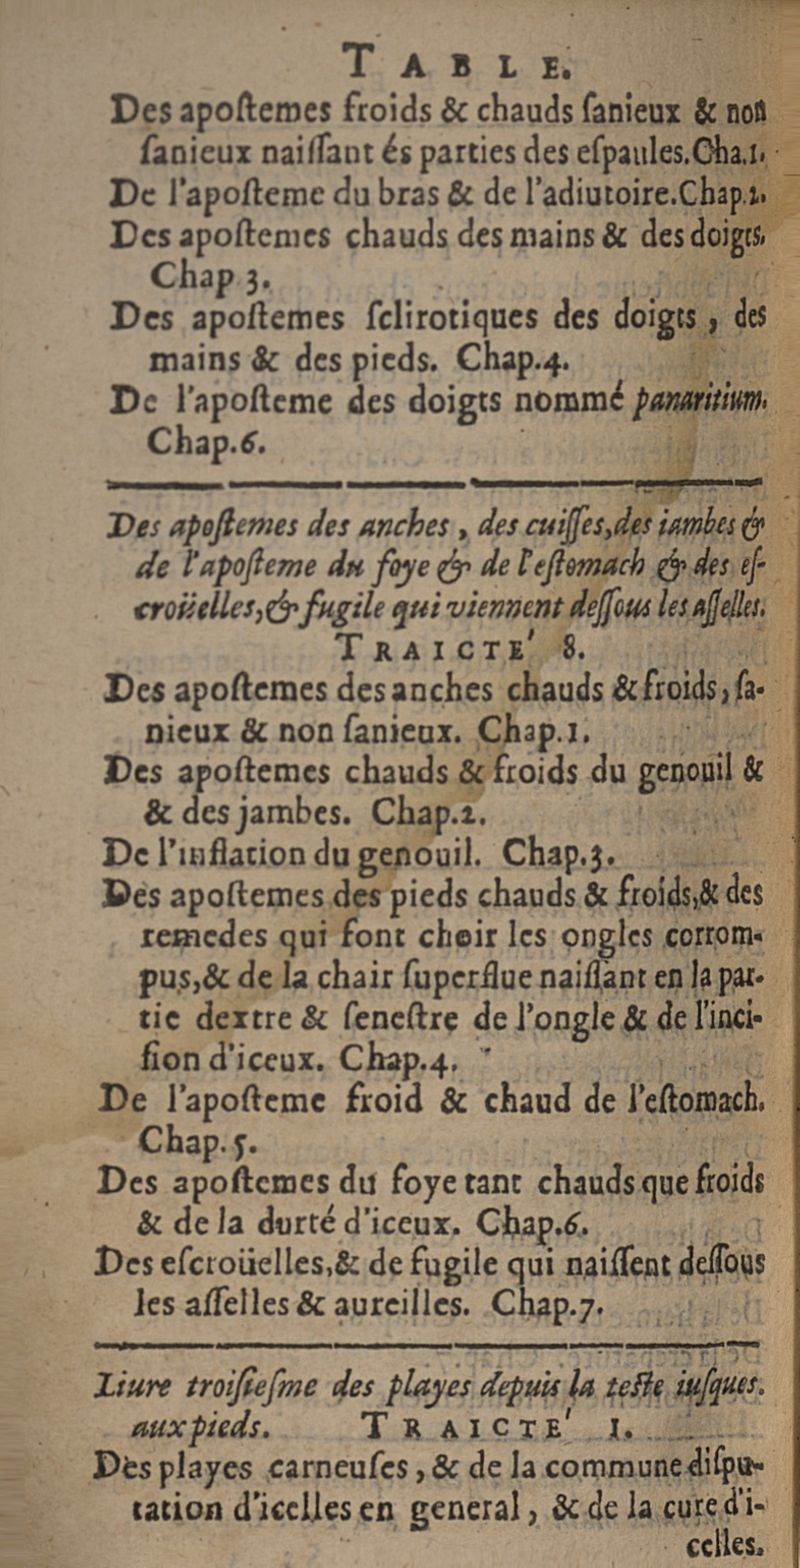 TABLE.
Des apoſtemes froids & chauds ſanieux & non
ſanieux naiſſant és parties des eſpaules. Cha.1.
De l'apoſteme du bras & de l'adiutoire. Chap.2.
Des apoſtemes chauds des mains & des doigts.
Chap.3.
Des apoſtemes ſclirotiques des doigts, des
mains & des pieds. Chap.4.
De l'apoſteme des doigts nommé panaritium.
Chap.6.
Des apoſtemes des anches, des cuiſſes, des iambes &
de l'apoſteme du foye & de l'eſtomach & des eſ-
croüelles, & fugile qui viennent deſſous les aſſelles.
TRAICTE' 8.
Des apoſtemes des anches chauds & froids, ſa-
nieux & non ſanieux. Chap.1.
Des apoſtemes chauds & froids du genouil &
& des jambes. Chap.2.
De l'inflation du genouil. Chap.3.
Des apoſtemes des pieds chauds & froids, & des
remedes qui font choir les ongles corrom-
pus, & de la chair ſuperflue naiſſant en la par-
tie dextre & ſeneſtre de l'ongle & de l'inci-
ſion d'iceux. Chap.4.
De l'apoſteme froid & chaud de l'eſtomach.
Chap.5.
Des apoſtemes du foye tant chauds que froids
& de la durté d'iceux. Chap.6.
Des eſcroüelles, & de fugile qui naiſſent deſſous
les aſſelles & aureilles. Chap.7.
Liure troiſieſme des playes depuis la teſte iuſques.
aux pieds. TRAICTE' I.
Des playes carneuſes, & de la commune diſpu-
tation d'icelles en general, & de la cure d'i-
celles.